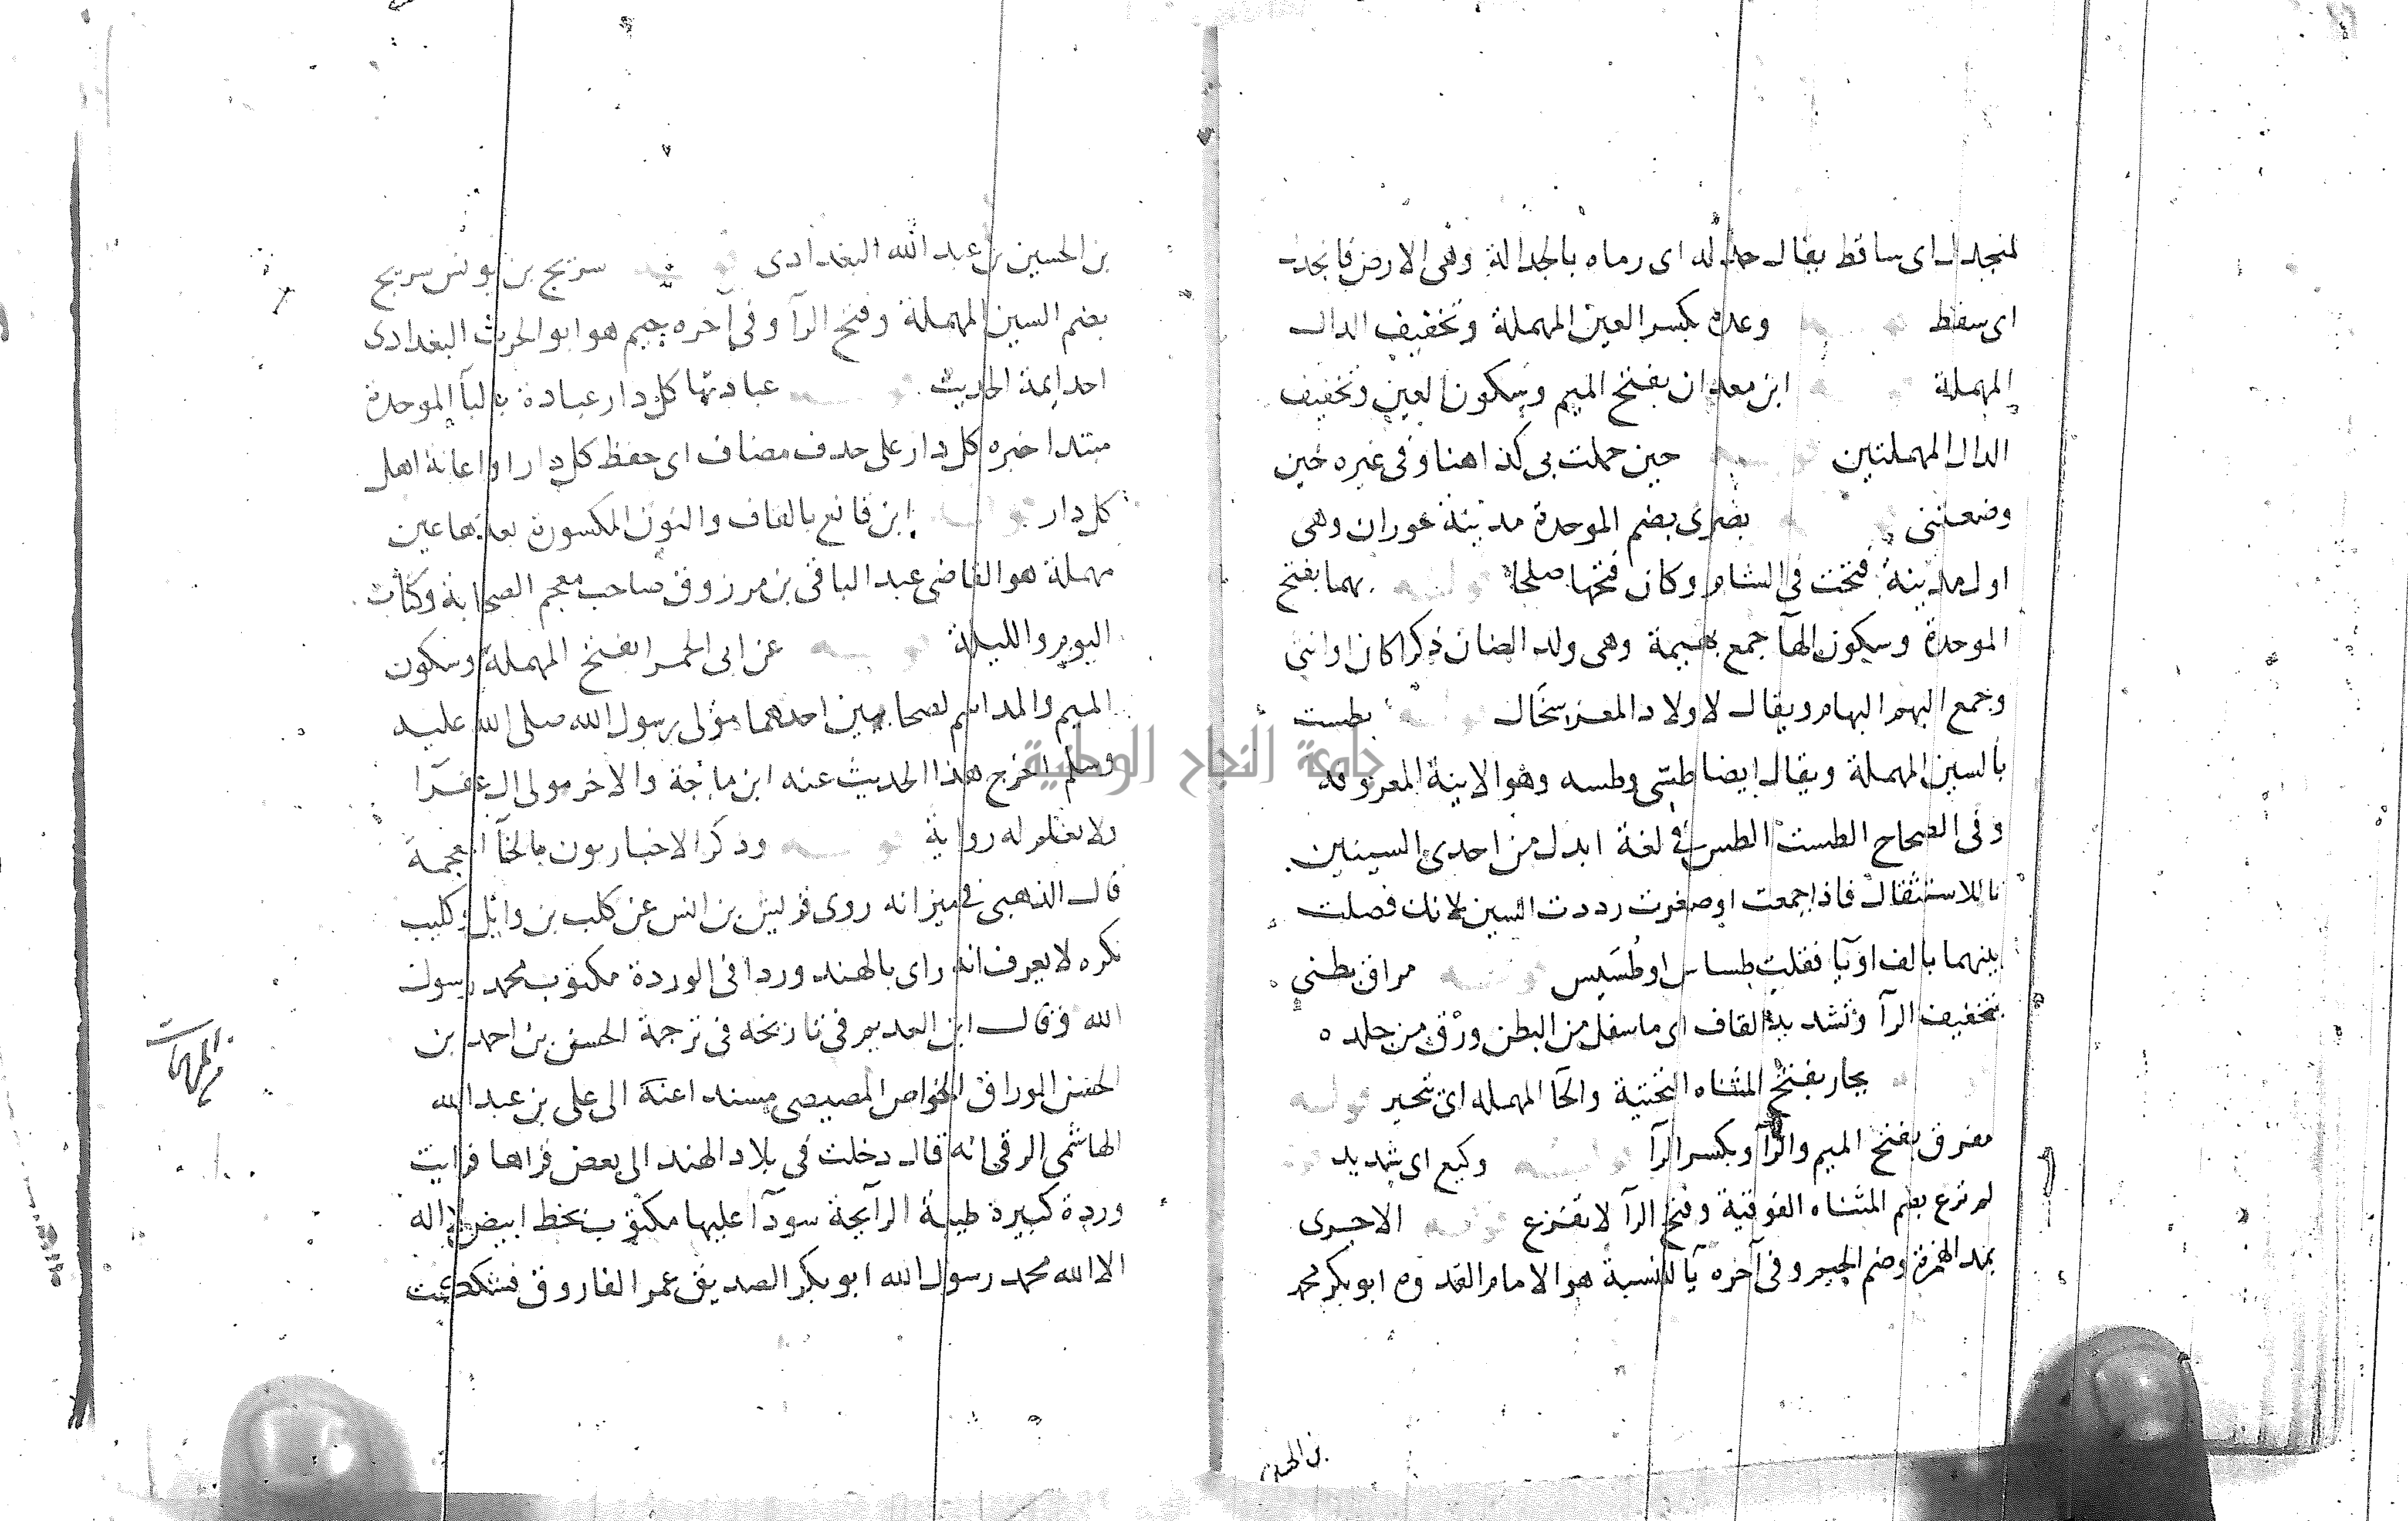 لمنجدل اى ساقط يقال جدله اى رماه بالجدالة وهى الارض فانجدل
اى سقط قوله وعدة بكسر العين المهملة وتخفيف الدال
المهملة قوله ابن معدان بفتح الميم وسكون العين وتخفيف
الدال المهملتين قوله حين حملت بى كذا هنا وفى غيره حين
وضعتنى بصرى بضم الموحدة مدينة حوران وهى
اول مدينة فتحت فى الشام وكان فتحها صلحا قوله بهما بفتح
الموحدة وسكون الهآ جمع بهيمة وهى ولد الضان ذكرا كان او انثى
وجمع البهم البهام ويقال لاولاد المعز سخال قوله بطست
بالسين المهملة ويقال ايضا طس وطسه وهو الانية المعروفة
وفى الصحاح الطست الطس فى لغة ابدل من احدى السينين
تا للاستثقال فاذا جمعت او صغرت رددت السين لانك فصلت
بينهما بالف او يآ فقلت طساس او طسيس قوله مراق بطنى
بتخفيف الرآ وتشديد القاف اى ما سفل من البطن ورق من جلده
يحار بفتح المثناه التحتية والحآ المهمله اى تحير قوله
مفرق بفتح الميم والرآ وبكسر الرآ قوله وكيع اى شديد قوله
لم ترع بضم المثناه الفوقية وفتح الرآ لا تفزع قوله الاجرى
بمد الهمزة وضم الجيم وفى آخره يآ النسبة هو الامام القدوة ابو بكر محمد
بن الحسين
بن الحسين بن عبد الله البغدادى قوله سريج بن يونس سريج
بضم السين المهملة وفتح الرآ وفى آخره جيم هو ابو الحرث البغدادى
احد ايمة الحديث قوله عبادتها كل دار عبادة بالبآ الموحدة
مبتدا خبره كل دار على حذف مضاف اى حفظ كل دار او اعانة اهل
كل دار قوله ابن قانع بالقاف والنون المكسورة بعدها عين
مهملة هو القاضى عبد الباقى بن مرزوق صاحب معجم الصحابة وكتاب
اليوم والليلة قوله عن ابى الحمرا بفتح المهملة وسكون
الميم والمد اسم لصحابيين احدهما مولى رسول الله صلى الله عليه
وسلم اخرج هذا الحديث عنه ابن ماجة والاخر مولى ال عفرآ
ولا نعلم له رواية قوله وذكر الاخباريون بالخآ المعجمة
قال الذهبى فى ميزانه روى قريش بن انس عن كليب بن وايل وكليب
نكره لا يعرف انه راى بالهند وردا فى الوردة مكتوب محمد رسول
الله وقال ابن العديم فى تاريخه فى ترجمة الحسن بن احمد بن
الحسن الوراق الخواص المصيصى مسند اعنه الى على بن عبد الله
الهاشمى الرقى انه قال دخلت فى بلاد الهند الى بعض قراها فرايت
وردة كبيرة طيبة الرآيحة سودآ عليها مكتوب بخط ابيض لا اله
الا الله محمد رسول الله ابو بكر الصديق عمر الفاروق فشككت
جامعة النجاح الوطنية